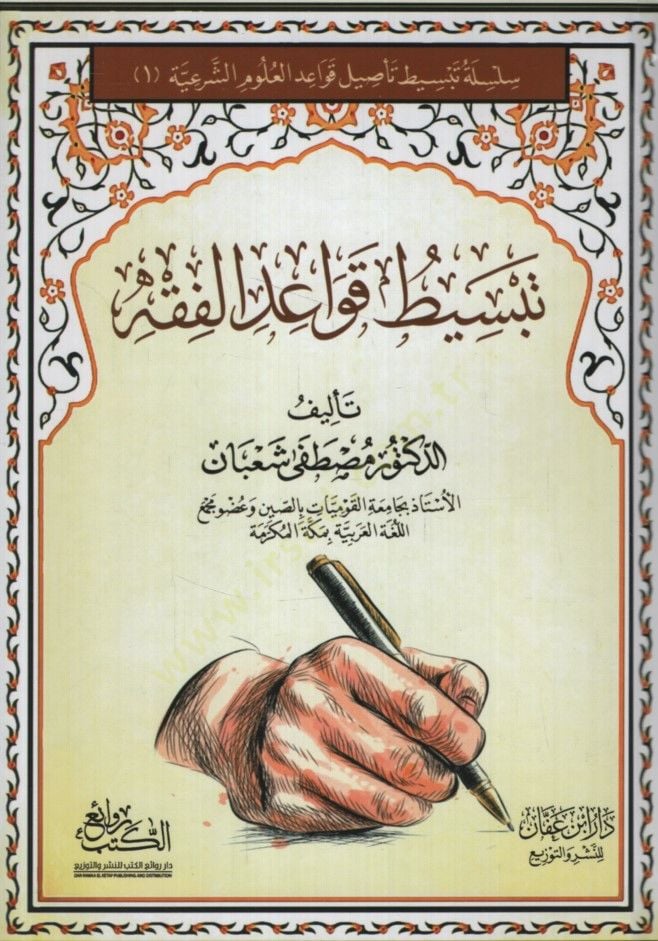 سِلْسِلَةُ تَبْسِيطِ تَأْصِيلِ قَوَاعِدِ العُلُومِ الشَّرْعِيَّةِ (١)
تَبْسِيطُ قَوَاعِدِ الفِقْهِ
تَأْلِيفُ
الدكتور مُصْطَفَى شَعْبَان
الأُسْتَاذ بِجَامِعَةِ القَوْمِيَّاتِ بِالصِّين وَعُضْو مَجْمَعِ
اللُّغَة العَرَبِيَّة بِمَكَّةَ المُكَرَّمَة
www.irs
m.tr
روائع
الكتب
دار روائع الكتب للنشر والتوزيع
DAR RAWAA EL KETAP PUBLISHING AND DISTRIBUTION
دَارُ ابْن عَفَّان
لِلنَّشْرِ وَالتَّوْزِيعِ